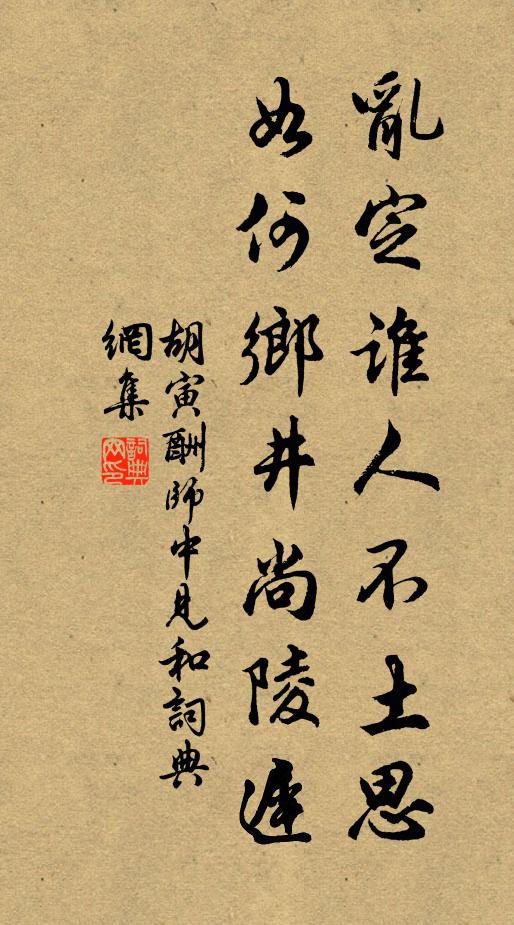 亂定誰人不土思
如何鄉井尚陵遲
胡寅酬師中見和詞典
網集
詞典
网印